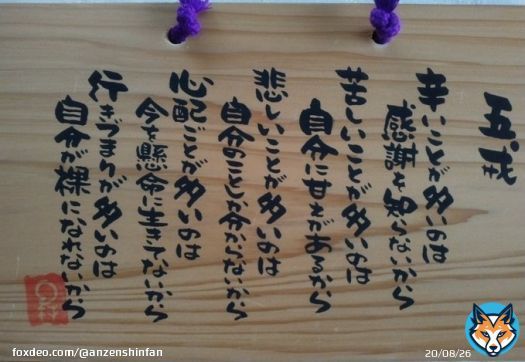 五戒
辛いことが多いのは
感謝を知らないから
苦しいことが多いのは
自分に甘えがあるから
悲しいことが多いのは
自分のことか分からないから
心配ごとが多いのは
今を懸命に生きてないから
行きづまりが多いのは
自分が裸になれないから
foxdeo.com/@anzenshinfan
20/08/26